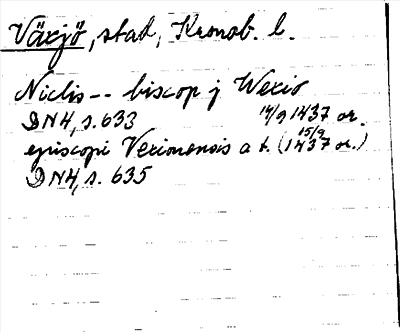 Växjö, stad, Kronob. l.
Niclis -- biscop j Wexio
DN4, s. 633 14/9 1437 or.
episcopi Vexionensis a t. (15/9 1437 or.)
DN4, s. 635